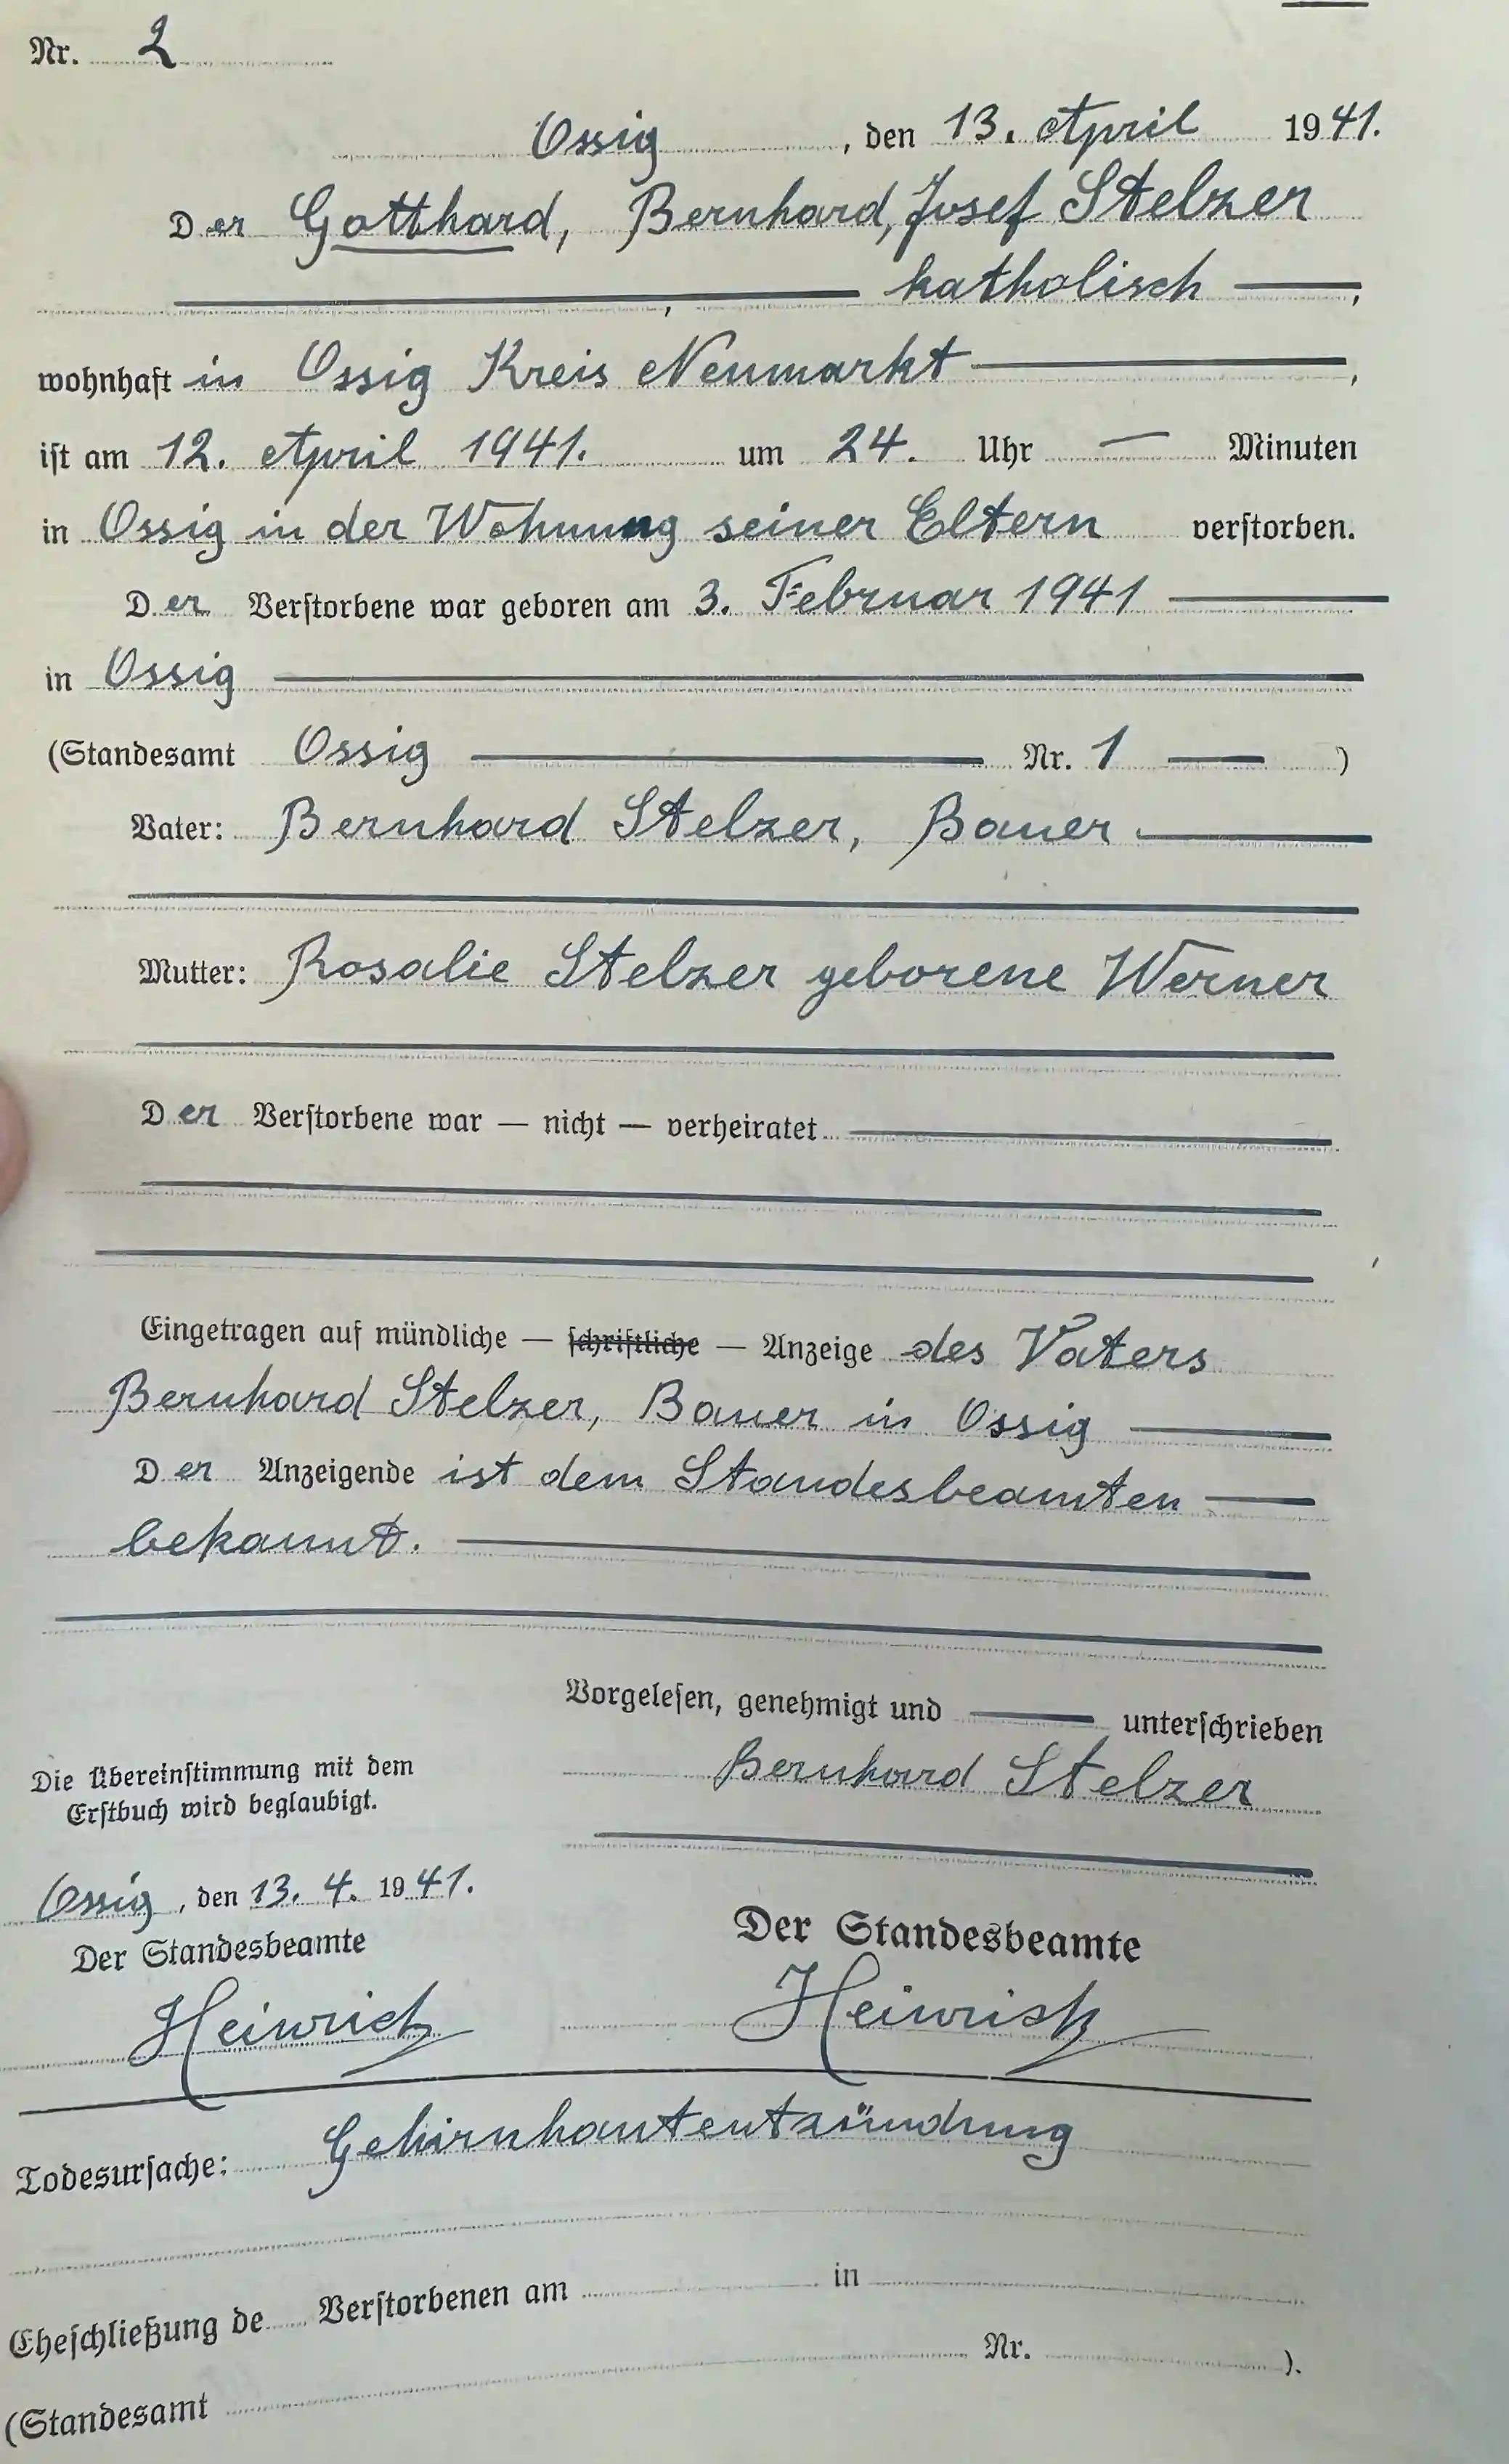 Nr. 2
Ossig, den 13. April 1941.
Der Gotthard, Bernhard, Josef Stelzer
katholisch,
wohnhaft in Ossig Kreis Neumarkt,
ist am 12. April 1941. um 24. Uhr — Minuten
in Ossig in der Wohnung seiner Eltern verstorben.
Der Verstorbene war geboren am 3. Februar 1941
in Ossig
(Standesamt Ossig Nr. 1 )
Vater: Bernhard Stelzer, Bauer
Mutter: Rosalie Stelzer geborene Werner
Der Verstorbene war — nicht — verheiratet
Eingetragen auf mündliche — schriftliche — Anzeige des Vaters
Bernhard Stelzer, Bauer in Ossig
Der Anzeigende ist dem Standesbeamten
bekannt.
Vorgelesen, genehmigt und unterschrieben
Bernhard Stelzer
Die Übereinstimmung mit dem
Erstbuch wird beglaubigt.
Ossig, den 13. 4. 1941.
Der Standesbeamte
Heinrich
Der Standesbeamte
Heinrich
Todesursache: Gehirnhautentzündung
Eheschließung de Verstorbenen am in
(Standesamt Nr. ).